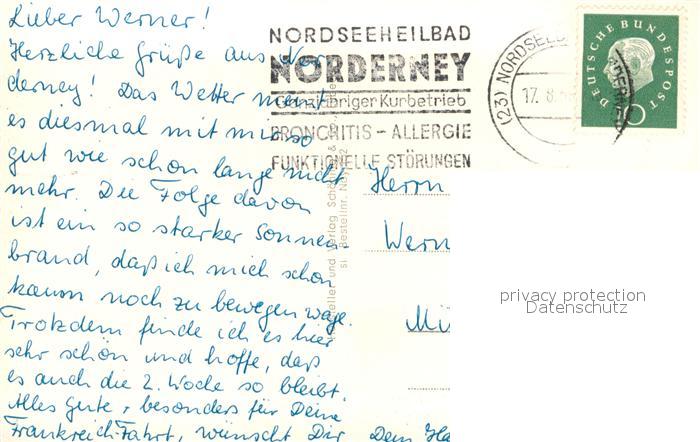 Lieber Werner!
Herzliche Grüße aus Nor
derney! Das Wetter meint
es diesmal mit mir so
gut wie schon lange nicht
mehr. Die Folge davon
ist ein so starker Sonnen-
brand, daß ich mich schon
kaum noch zu bewegen wage.
Trotzdem finde ich es hier
sehr schön und hoffe, daß
es auch die 2. Woche so bleibt.
Alles Gute, besonders für Deine
Frankreich-Fahrt, wünscht Dir Dein
NORDSEEHEILBAD
NORDERNEY
Ganzjähriger Kurbetrieb
BRONCHITIS – ALLERGIE
FUNKTIONELLE STÖRUNGEN
(23) NORDSEEB
17. 8.
DEUTSCHE BUNDESPOST
10
Herrn
Wern
Verlag Schö
Bestellnr.
privacy protection
Datenschutz